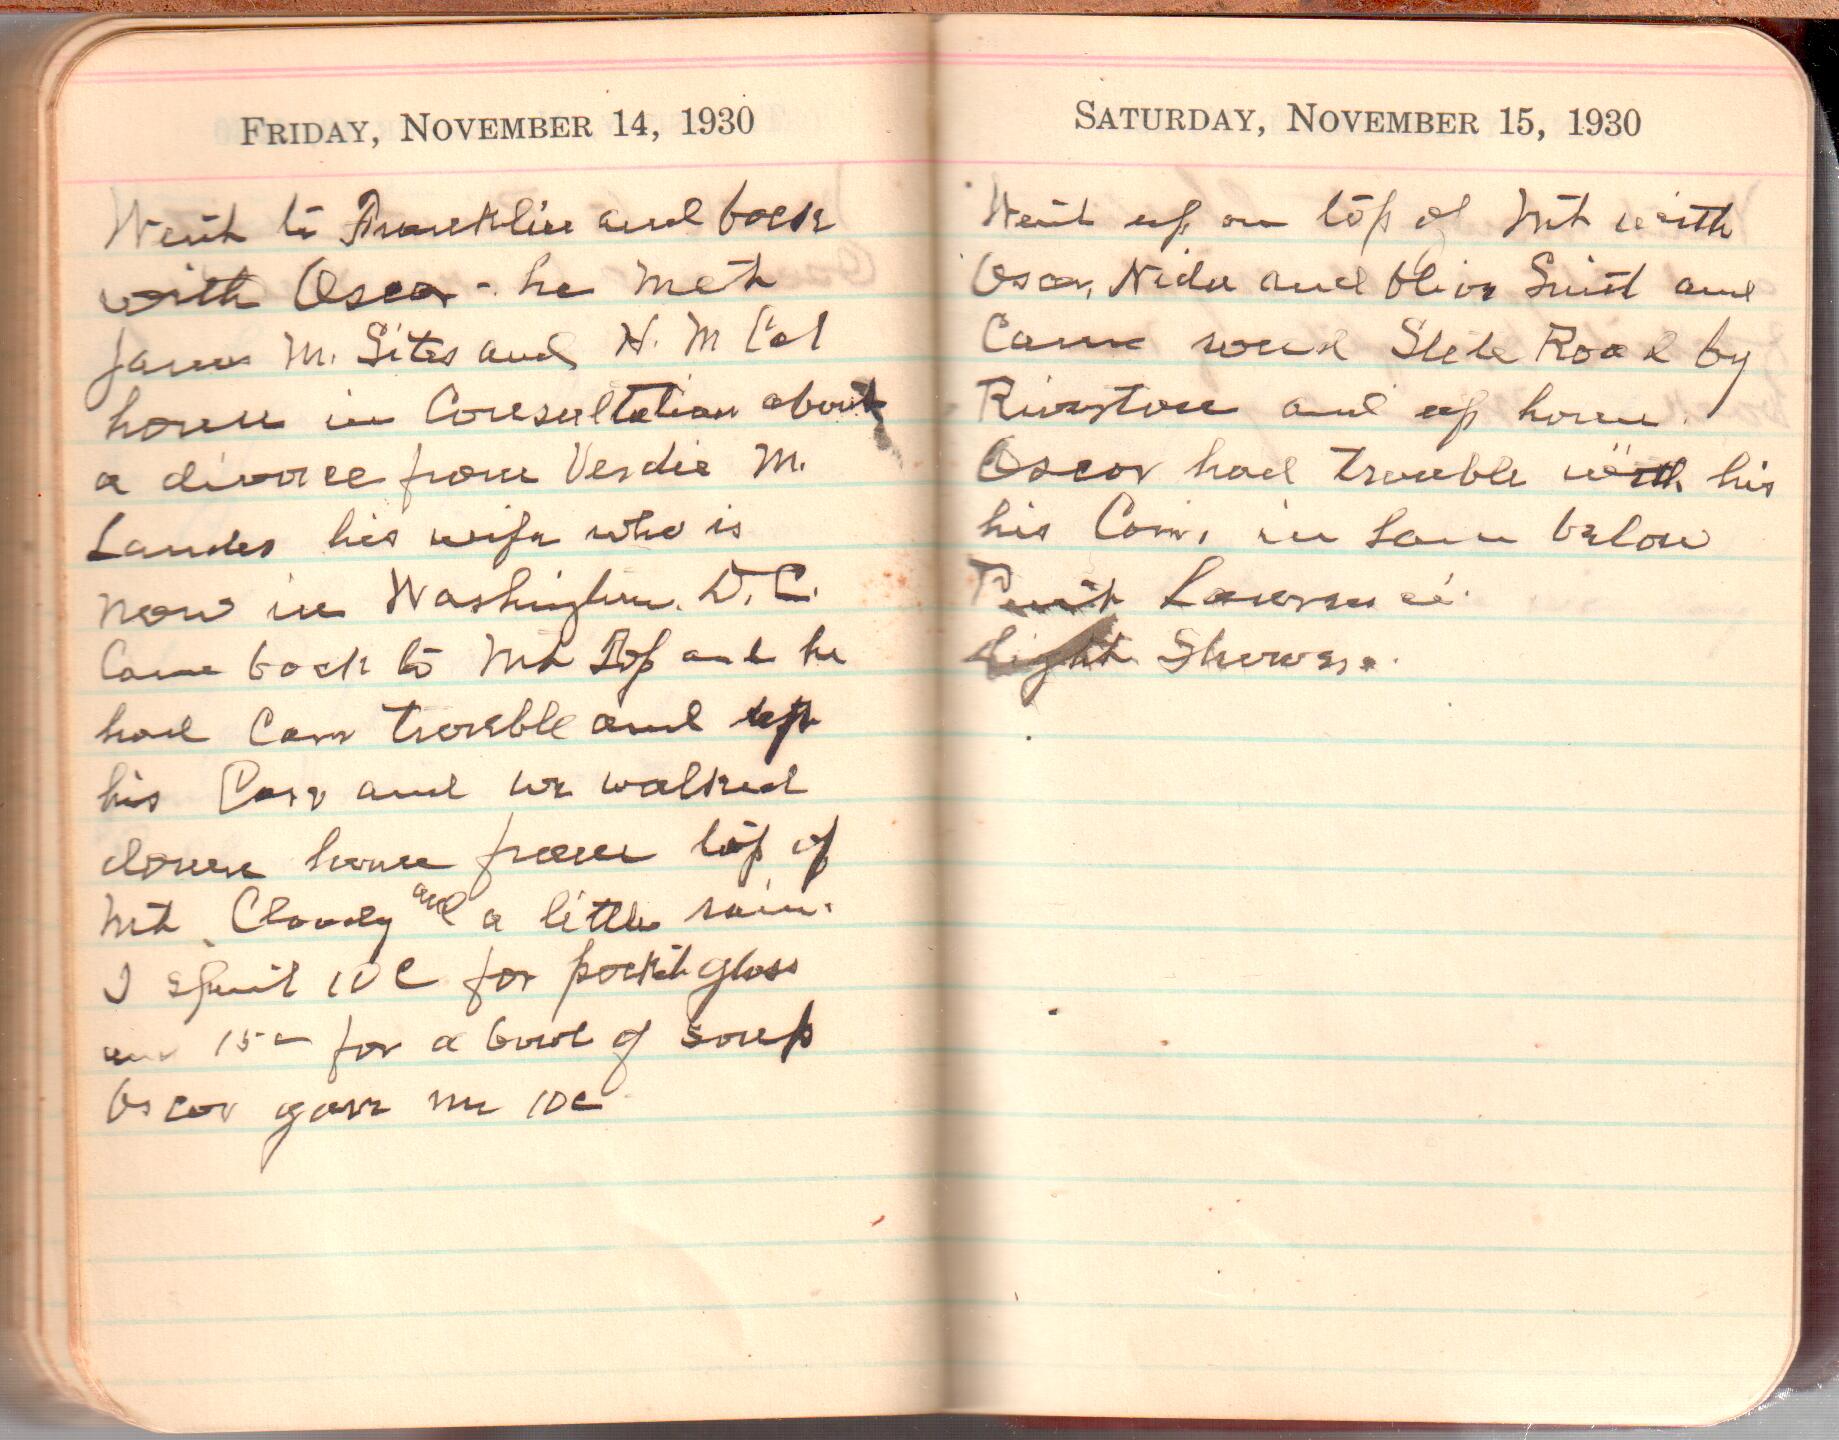 FRIDAY, NOVEMBER 14, 1930
Went to Franklin and back
with Oscar - he met
James M. Sites and H. M Cal
houn in Consultation about
a divorce from Verdie M.
Landes his wife who is
now in Washington. D.C.
Came back to Mt Top and he
had Carr trouble and left
his Carr and we walked
down home from top of
Mt. Cloudy and a little rain.
I spent 10c for pocket glass
and 15c for a bowl of soup
Oscar gave me 10c
SATURDAY, NOVEMBER 15, 1930
Went up on top of Mt with
Oscar, Nida and Olive Smith and
Came round State Road by
Riverton and up home.
Oscar had trouble with his
his Carr, in lane below
Lawrence
Light Showers.